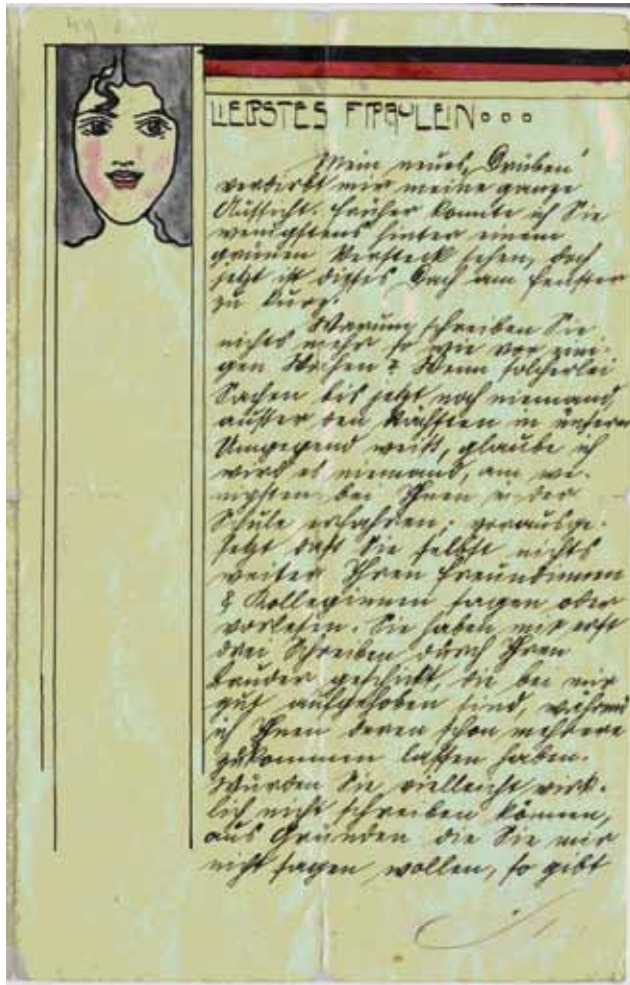 LIEBSTES FRÄULEIN...
Mein neues „Drüben“
verdirbt mir meine ganze
Aussicht. Früher konnte ich Sie
wenigstens hinter einem
grünen Versteck sehen, doch
jetzt ist dieses Dach am Fenster
zu kurz.
Warum schreiben Sie
nichts mehr so wie vor eini-
gen Wochen? Wenn solcherlei
Sachen bis jetzt noch niemand
ausser den Nächsten in unserer
Umgegend weiß, glaube ich
wird es niemand, am we-
nigsten bei Ihnen in der
Schule erfahren; vorausge-
setzt daß Sie selbst nichts
weiter Ihren Freundinnen
& Kolleginnen sagen oder
vorlesen. Sie haben mir erst
drei Schreiben durch Ihren
Bruder geschickt, die bei mir
gut aufgehoben sind, während
ich Ihnen deren schon mehrere
zukommen lassen haben.
Würden Sie vielleicht wirk-
lich nicht schreiben können,
aus Gründen die Sie mir
nicht sagen wollen, so gibt